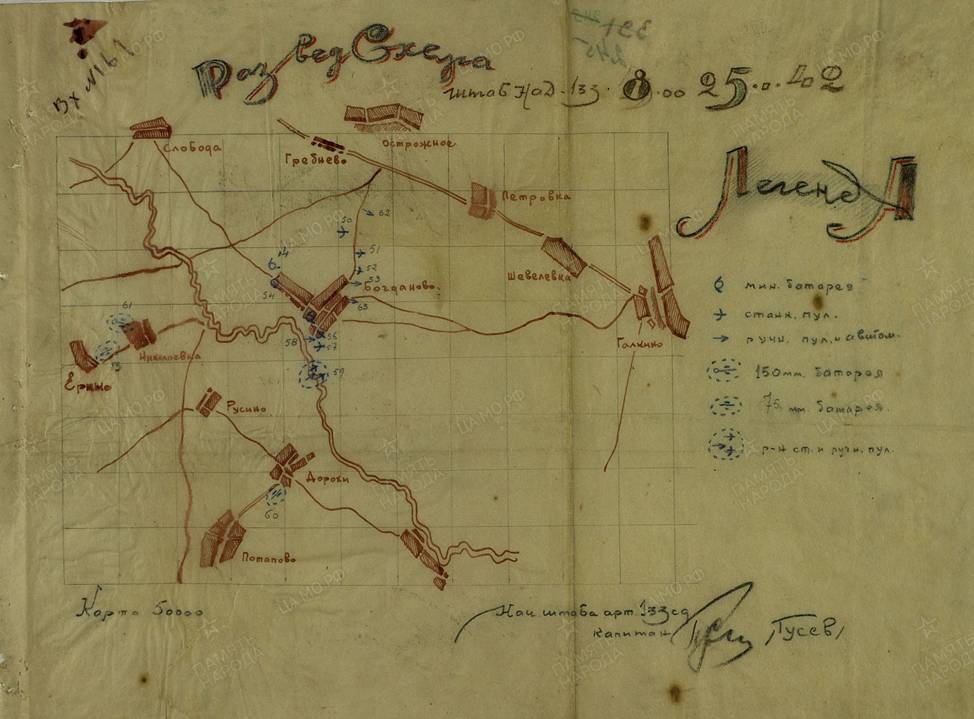 Вх №161
РазведСхема
штаб НАД-133. 8.00 25.0.42
Слобода
Гребнево
Острожное
Петровка
Шавелевка
Галкино
Богданово.
50
62
51
52
53
54
63
56
57
58
59
61
Николаевка
Ерино
Русино
Дорохи
60
Потапово
ЛегендА
мин. батарея
станк. пул.
ручн. пул. и автом.
150 мм. батарея
75 мм. батарея.
р-н ст. и ручн. пул.
Карта 50000
Нач. штаба арт. 133 сд
капитан
/Гусев/
ПАМЯТЬ НАРОДА
ЦА.МО.РФ